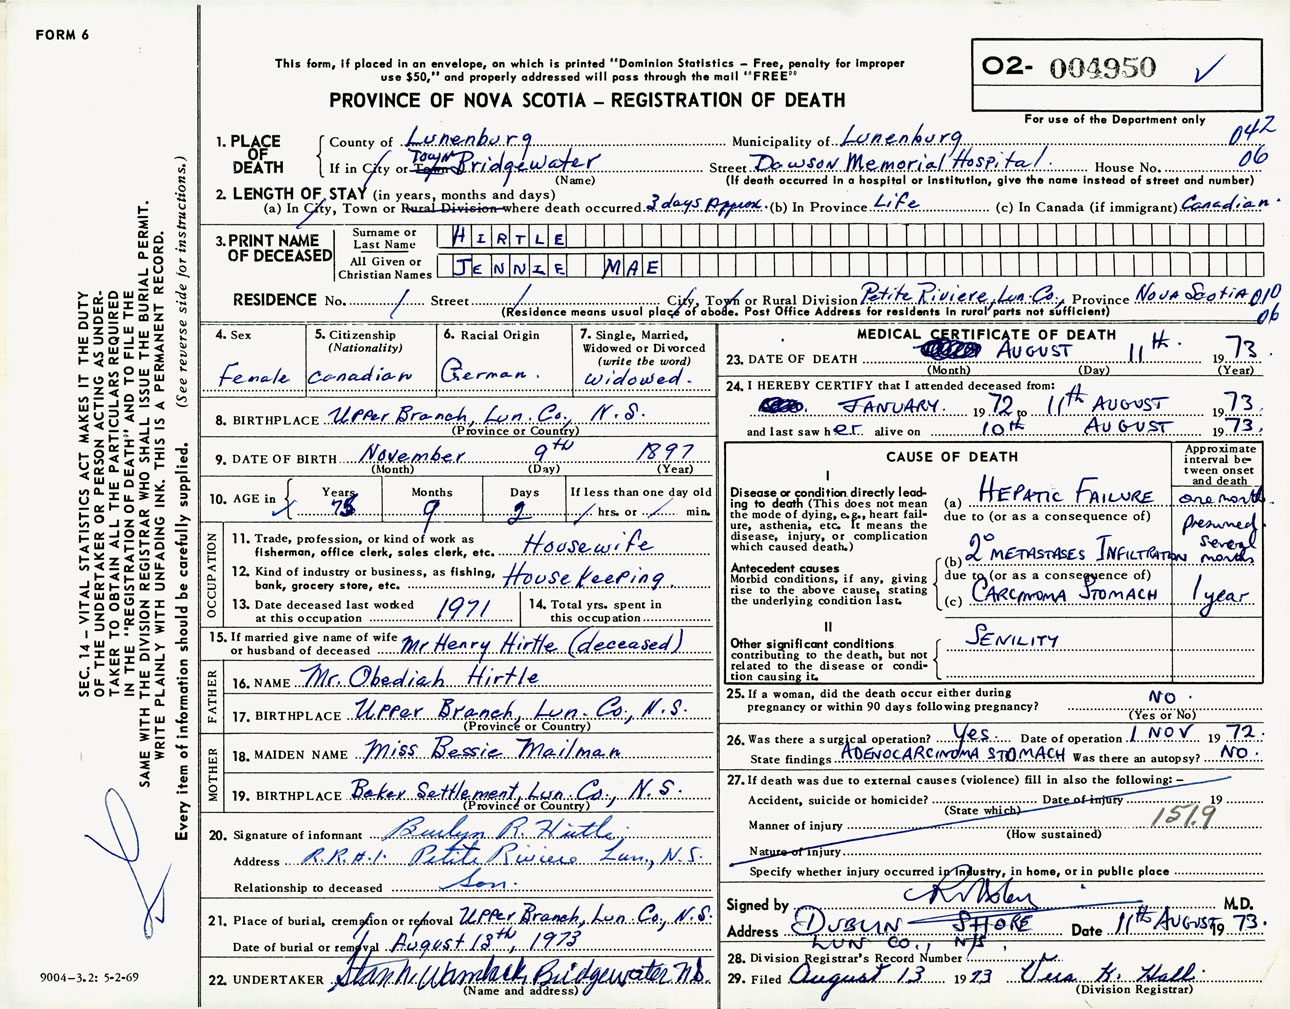 FORM 6
This form, if placed in an envelope, on which is printed "Dominion Statistics – Free, penalty for improper
use $50," and properly addressed will pass through the mail "FREE"
PROVINCE OF NOVA SCOTIA – REGISTRATION OF DEATH
02- 004950 ✓
For use of the Department only
SEC. 14 – VITAL STATISTICS ACT MAKES IT THE DUTY
OF THE UNDERTAKER OR PERSON ACTING AS UNDER-
TAKER TO OBTAIN ALL THE PARTICULARS REQUIRED
IN THE "REGISTRATION OF DEATH" AND TO FILE THE
SAME WITH THE DIVISION REGISTRAR WHO SHALL ISSUE THE BURIAL PERMIT.
WRITE PLAINLY WITH UNFADING INK. THIS IS A PERMANENT RECORD.
Every item of information should be carefully supplied. (See reverse side for instructions.)
1. PLACE OF DEATH
County of Lunenburg Municipality of Lunenburg 042
If in City or Town Town Bridgewater Street Dawson Memorial Hospital. House No. 06
(Name) (If death occurred in a hospital or institution, give the name instead of street and number)
2. LENGTH OF STAY (in years, months and days)
(a) In City, Town or Rural Division where death occurred 3 days Approx. (b) In Province Life (c) In Canada (if immigrant) Canadian.
3. PRINT NAME OF DECEASED
Surname or Last Name HIRTLE
All Given or Christian Names JENNIE MAE
RESIDENCE No. / Street / City, Town or Rural Division Petite Riviere, Lun. Co., Province Nova Scotia 010
(Residence means usual place of abode. Post Office Address for residents in rural parts not sufficient) 06
4. Sex Female
5. Citizenship (Nationality) Canadian
6. Racial Origin German.
7. Single, Married, Widowed or Divorced (write the word) Widowed.
8. BIRTHPLACE Upper Branch, Lun. Co., N.S.
(Province or Country)
9. DATE OF BIRTH November 9th 1897
(Month) (Day) (Year)
10. AGE in Years 75 Months 9 Days 2 If less than one day old / hrs. or / min.
OCCUPATION
11. Trade, profession, or kind of work as fisherman, office clerk, sales clerk, etc. Housewife
12. Kind of industry or business, as fishing, bank, grocery store, etc. House keeping.
13. Date deceased last worked at this occupation 1971
14. Total yrs. spent in this occupation
15. If married give name of wife or husband of deceased Mr Henry Hirtle (deceased)
FATHER
16. NAME Mr. Obediah Hirtle
17. BIRTHPLACE Upper Branch, Lun. Co., N.S.
(Province or Country)
MOTHER
18. MAIDEN NAME Miss Bessie Mailman
19. BIRTHPLACE Baker Settlement, Lun. Co., N.S.
(Province or Country)
20. Signature of informant R. Hirtle
Address R.R.#1. Petite Riviere Lun., N.S.
Relationship to deceased Son.
21. Place of burial, cremation or removal Upper Branch, Lun. Co., N.S.
Date of burial or removal August 13th, 1973
22. UNDERTAKER Bridgewater N.S.
(Name and address)
MEDICAL CERTIFICATE OF DEATH
23. DATE OF DEATH AUGUST 11th. 1973.
(Month) (Day) (Year)
24. I HEREBY CERTIFY that I attended deceased from:
JANUARY. 1972 to 11th AUGUST 1973.
and last saw her alive on 10th AUGUST 1973.
CAUSE OF DEATH
Approximate interval between onset and death
I
Disease or condition directly leading to death (This does not mean the mode of dying, e.g., heart failure, asthenia, etc. It means the disease, injury, or complication which caused death.)
(a) HEPATIC FAILURE one month.
due to (or as a consequence of)
Antecedent causes
Morbid conditions, if any, giving rise to the above cause, stating the underlying condition last.
(b) 2° METASTASES INFILTRATION presumed several months
due to (or as a consequence of)
(c) CARCINOMA STOMACH 1 year
II
Other significant conditions contributing to the death, but not related to the disease or condition causing it.
SENILITY
25. If a woman, did the death occur either during pregnancy or within 90 days following pregnancy? NO.
(Yes or No)
26. Was there a surgical operation? Yes. Date of operation 1 NOV 1972.
State findings ADENOCARCINOMA STOMACH Was there an autopsy? NO.
27. If death was due to external causes (violence) fill in also the following: –
Accident, suicide or homicide? Date of injury 19
(State which)
Manner of injury 151.9
(How sustained)
Nature of injury
Specify whether injury occurred in industry, in home, or in public place
Signed by M.D.
Address DUBLIN SHORE Date 11th AUGUST 1973.
LUN CO., N/S,
28. Division Registrar's Record Number
29. Filed August 13 1973 Vera K. Hall.
(Division Registrar)
9004-3.2: 5-2-69